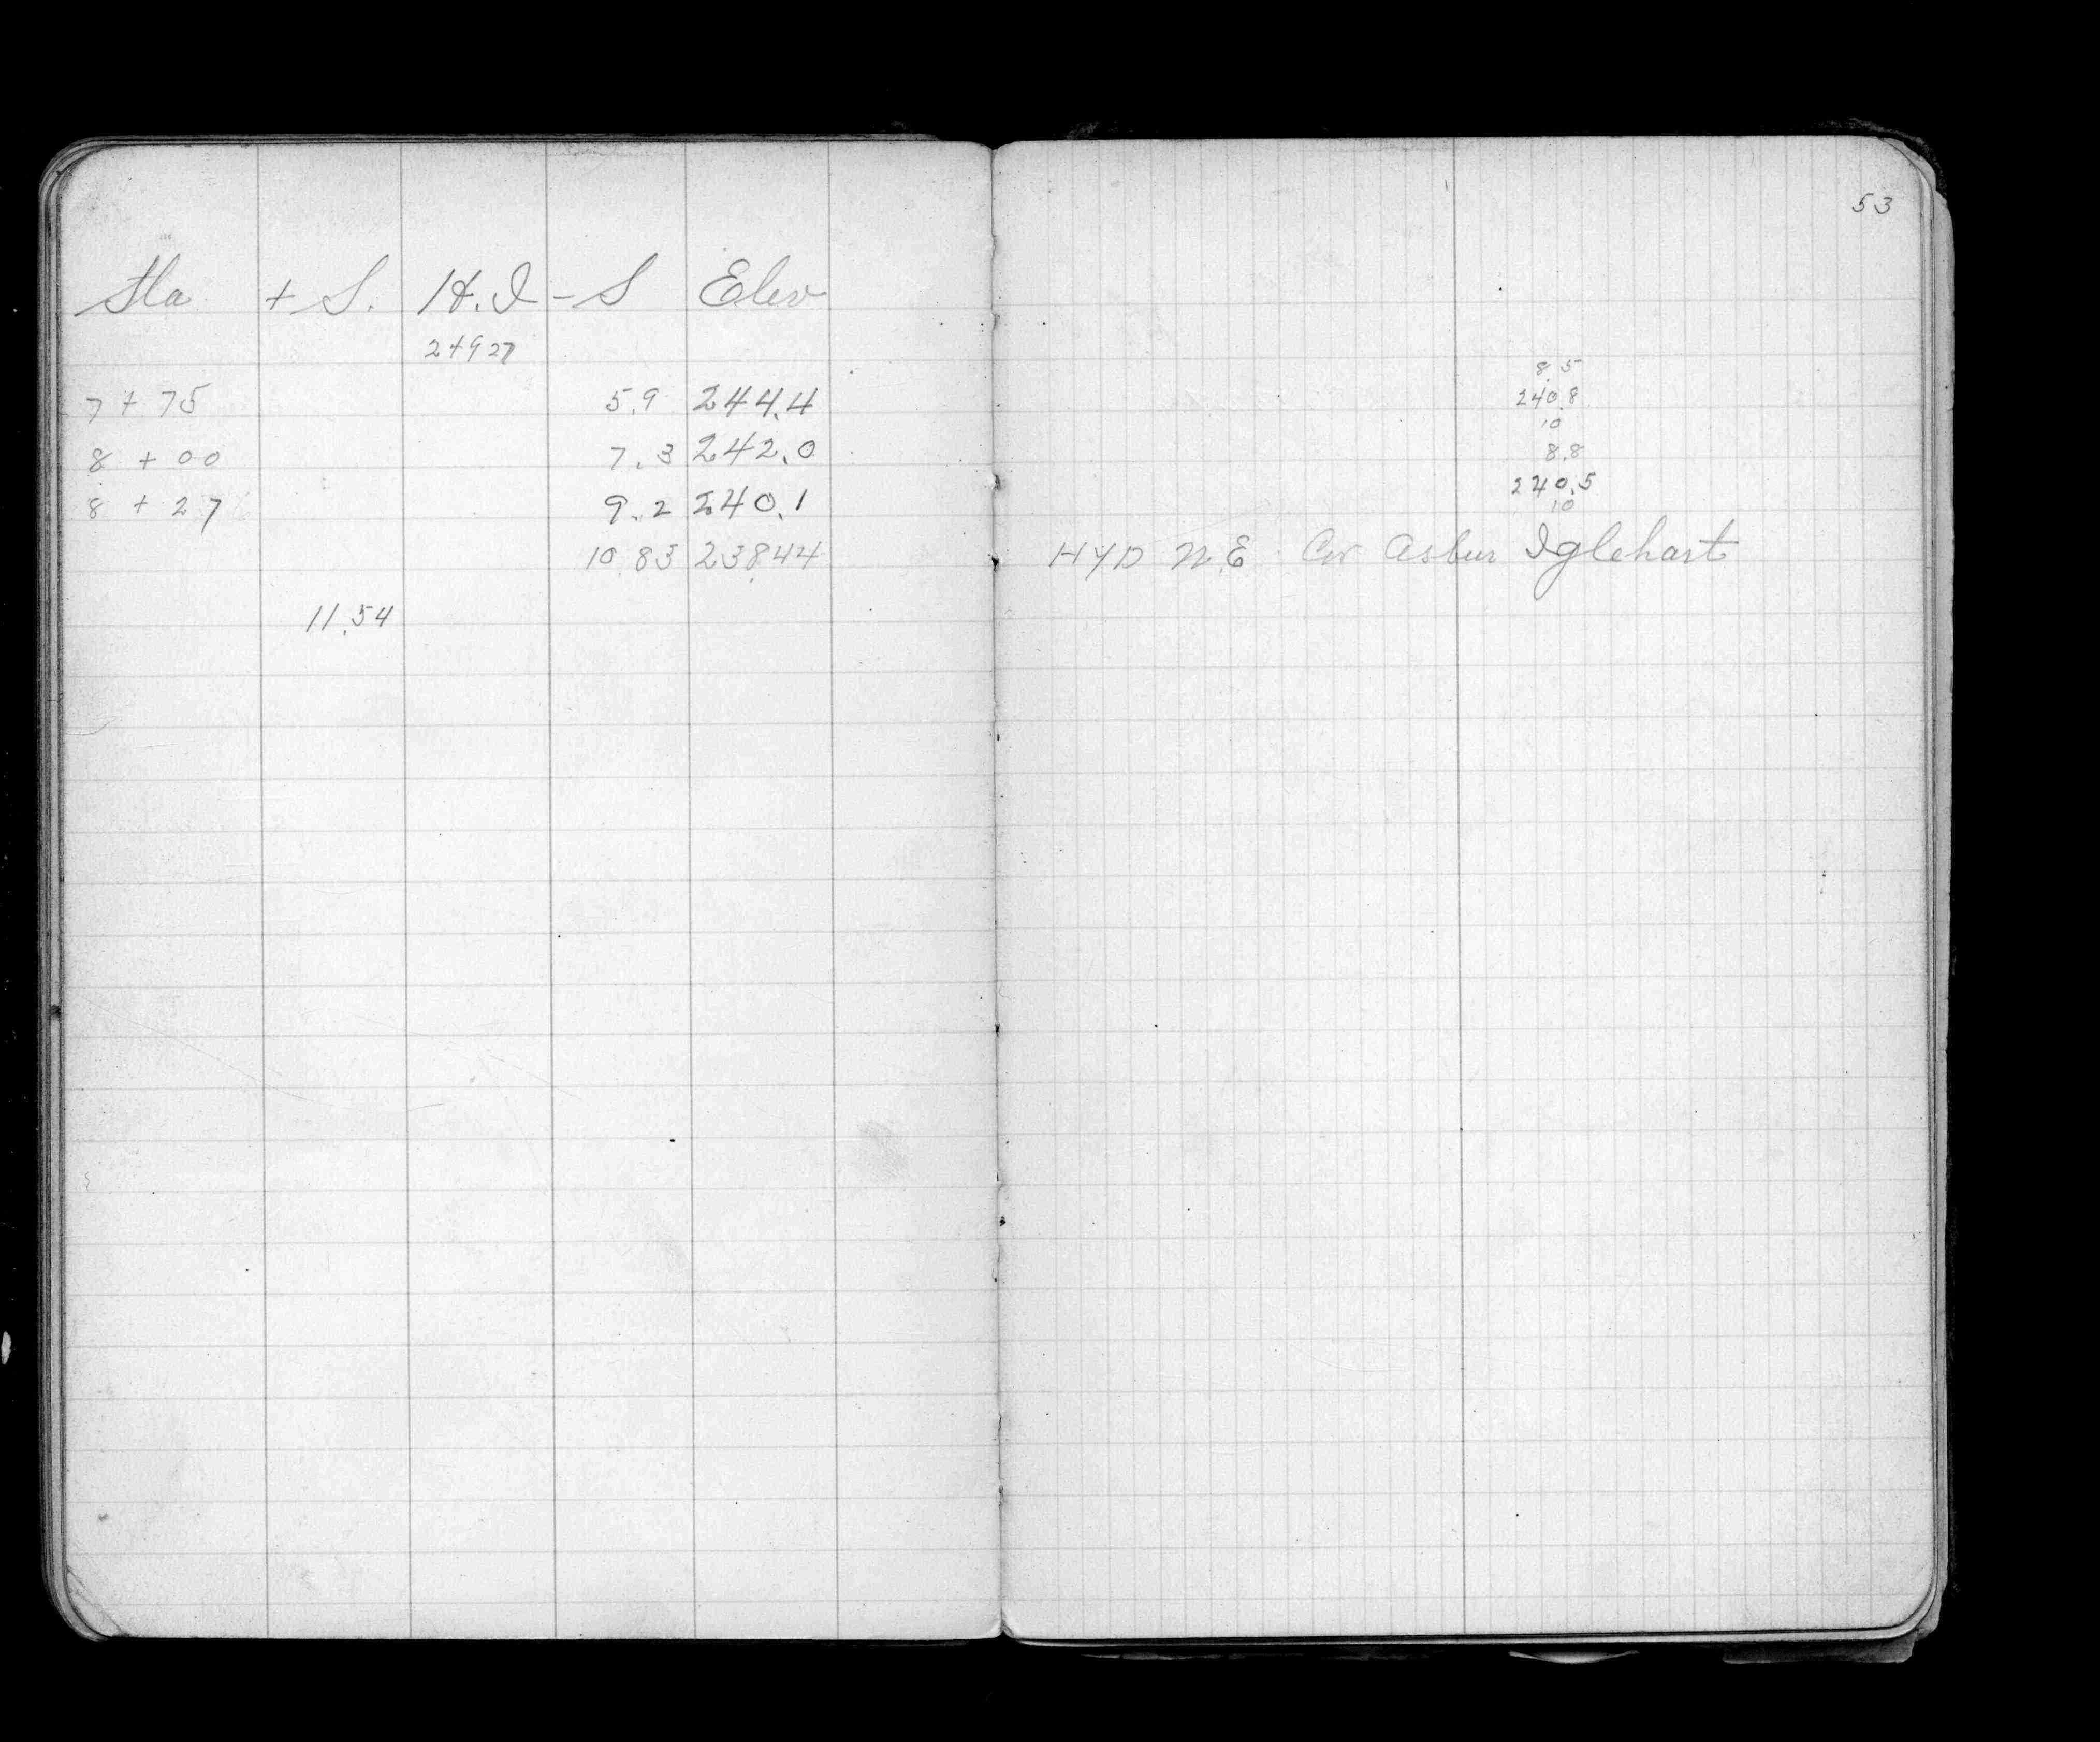 Sta + S. H.I - S Elev
249 27
7 + 75 5.9 244.4
8 + 00 7.3 242.0
8 + 27 9.2 240.1
10.83 238.44
11.54
53
8.5
240.8
10
8.8
240.5
10
HYD N.E. Cor Asbur Iglehart